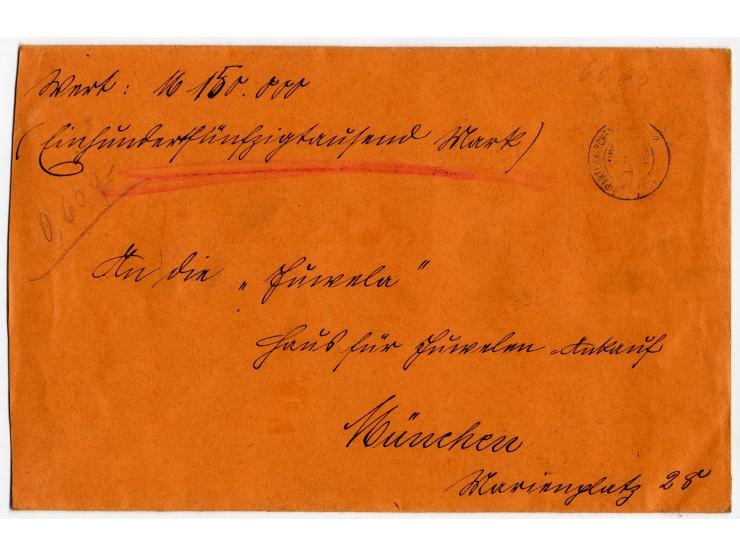 Wert: M 150.000
(Einhundertfünfzigtausend Mark)
60,60
0,60 g
An die „Juwela"
Haus für Juwelen-Ankauf
München
Marienplatz 28